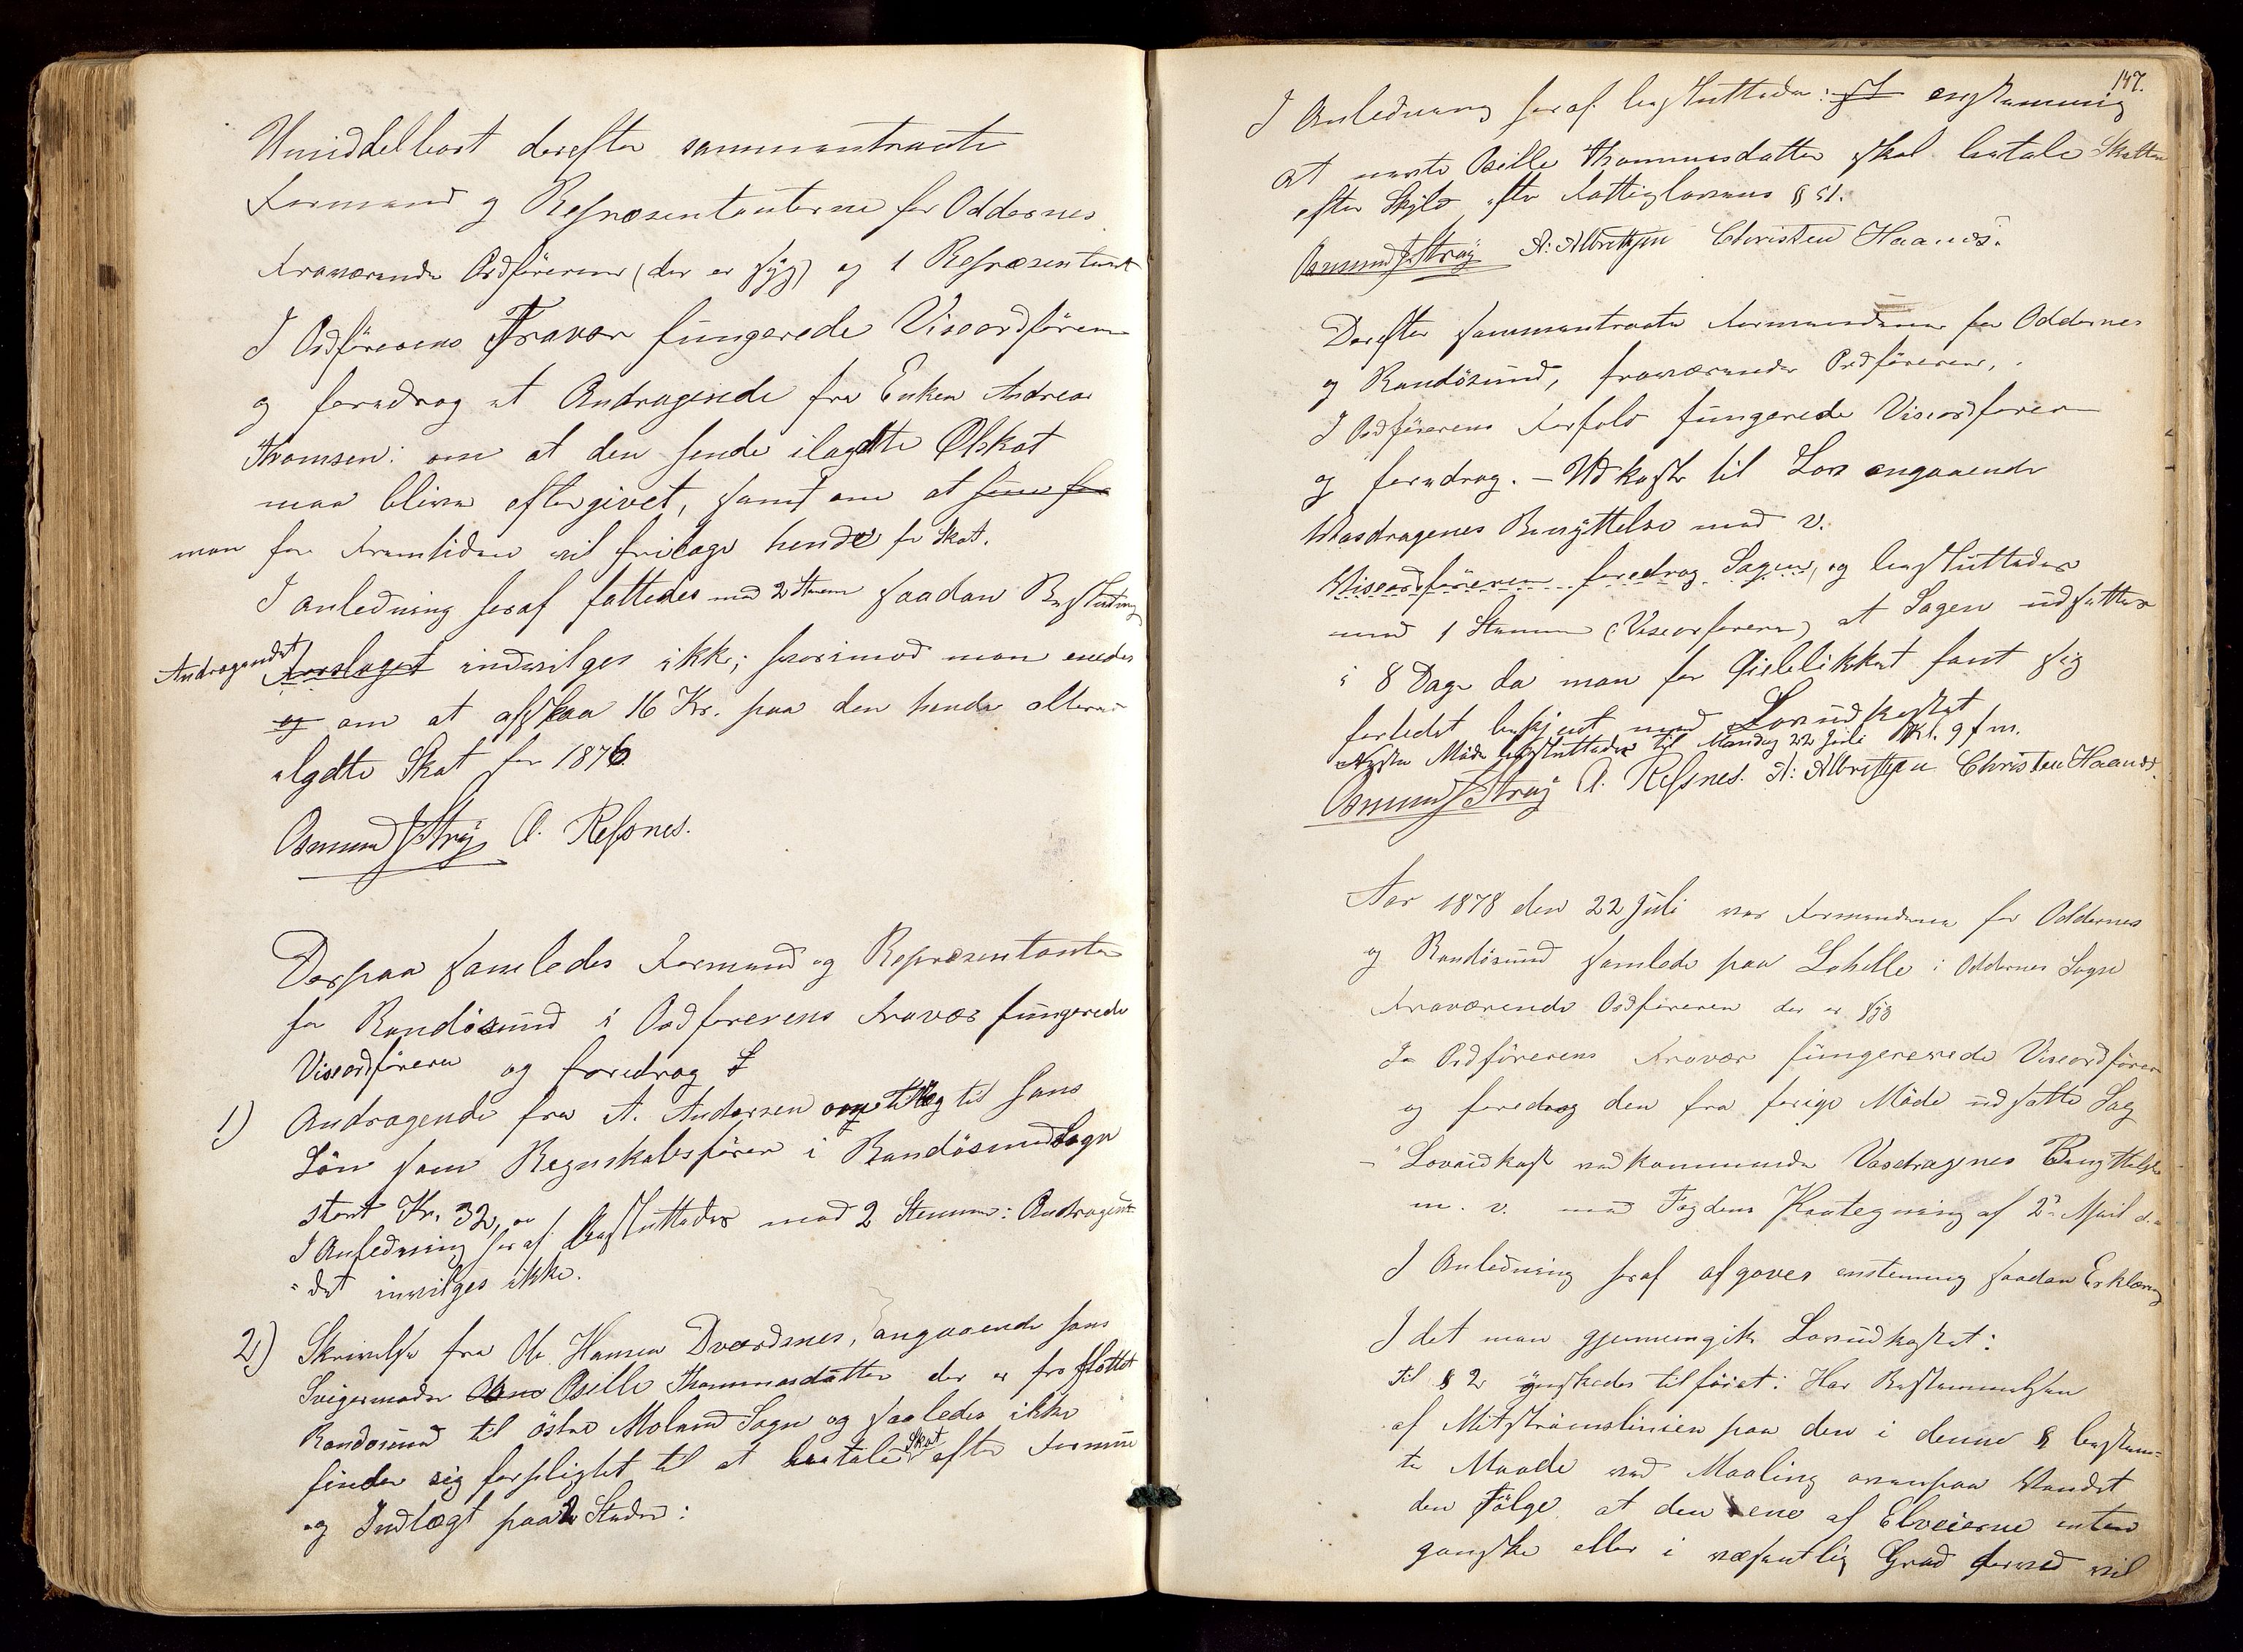 Umiddelbart derefter sammentraadte
Formænd og Repræsentanterne for Oddernes
Fraværende Ordföreren (der er syg) og 1 Repræsentant
I Ordförerens Fravær fungerede Viseordföreren
og foredrog et Andragende fra Enken Andrea
Thomsen: om at den hende ilagdte Ölskat
maa blive eftergivet, samt om at
man for Fremtiden vil fritage hende for Skat.
I anledning heraf fattedes med 2 Stemmer saadan Beslutning
Andragendet Forslaget indvilges ikke; hvorimod man enedes
og om at afslaa 16 Kr. paa den hende allerede
ilgdte Skat for 1876.
Osmund JStray O. Ressnes.
Derpaa samledes Formænd og Repræsentanter
for Randösund i Ordforerens Fravær fungerede
Viseordföreren og foredrog
1) Andragende fra A. Andersen om tillæg til hans
Lön som Regnskabsförer i Randösund Sogn
stort Kr. 32,00
I Anledning heraf besluttedes med 2 Stemmer: Andragen-
det invilges ikke.
2) Skrivelse fra Ole Hansen Dværdsnes, angaaende hans
Svigermoder Osille Thommasdatter der er fra flöttet
Randosund til östre Moland Sogn og saaledes ikke
finder sig forpligtet til at betale Skat efter Formue
og Indtægt paa 2 Steder:
147.
I Anledning heraf besluttedes: enstemmig
at nævte Osille Thommesdatter skal betale Skatten
efter Skyld, efter Fattiglovens § 51.
Osmund JStray A. Albretsen Christen Haanes.
Derefter sammentraadte Formændene for Oddernes
og Randösund, fraværende Ordföreren,
I Ordförerens Forfald fungerede Viseordforeren
og foredrog. - Udkast til Lov angaaende
Vasdragenes Benyttelse med v.
Viseordföreren foredrog Sagen, og besluttedes
med 1 Stemme (: Viseorforeren) at Sagen udsættes
i 8 Dage da man for Öieblikket fant sig
forledet bekjent med Lovudkastet
Neste Möde besluttedes til Mandag 22 Juli Kl. 9 f m.
Osmund JStray O. Ressnes. A. Albretsen Christen Haanes.
Aar 1878 den 22 Juli var Formændene for Oddernes
og Randösund samlede paa Lohelle i Oddernes Sogn
Fraværende Ordföreren der er syg
I Ordförerens Fravær fungerede Viseordförer
og foredrog den fra forige Möde udsatte Sag
- "Lovudkast vedkommende Vasdragenes Benyttelse
m. v. med Fogdens Paategning af 2den April d.a
I Anledning heraf afgaves enstemmig saadan Erklæring
I det man gjennemgik Lovudkastet:
Til § 2 önskedes tilföiet: Har Bestemmelsen
af Mitströmslinien paa den i denne § bestem-
te Maade ved Maaling ovenpaa Vandet
den Fölge at den ene af Elveierne enten
ganske eller i væsentlig Grad herved vil